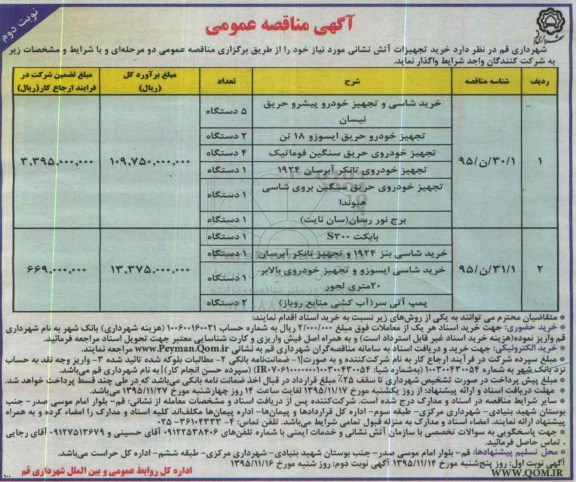 نوبت دوم
آگهی مناقصه عمومی
شهرداری قم
شهرداری قم در نظر دارد خرید تجهیزات آتش نشانی مورد نیاز خود را از طریق برگزاری مناقصه عمومی دو مرحله‌ای و با شرایط و مشخصات زیر
به شرکت کنندگان واجد شرایط واگذار نماید.
ردیف شناسه مناقصه شرح تعداد مبلغ برآورد کل (ریال) مبلغ تضمین شرکت در فرایند ارجاع کار(ریال)
۱ ۹۵/ن/۳۰/۱ خرید شاسی و تجهیز خودرو پیشرو حریق نیسان ۵ دستگاه ۱۰۹,۷۵۰,۰۰۰,۰۰۰ ۳,۳۹۵,۰۰۰,۰۰۰
تجهیز خودرو حریق ایسوزو ۱۸ تن ۲ دستگاه
تجهیز خودروی حریق سنگین فوماتیک ۴ دستگاه
تجهیز خودروی تانکر آبرسان ۱۹۲۴ ۱ دستگاه
تجهیز خودروی حریق سنگین بروی شاسی هیوندا ۱ دستگاه
برج نور رسان(سان نایت) ۱ دستگاه
۲ ۹۵/ن/۳۱/۱ بابکت S۳۰۰ ۱ دستگاه ۱۳,۳۷۵,۰۰۰,۰۰۰ ۶۶۹,۰۰۰,۰۰۰
خرید شاسی بنز ۱۹۲۴ و تجهیز تانکر آبرسان ۱ دستگاه
خرید شاسی ایسوزو و تجهیز خودروی بالابر ۲۰متری لجور ۱ دستگاه
پمپ آتی سر(آب کشی منابع روباز) ۲ دستگاه
* متقاضیان محترم می توانند به یکی از روش‌های زیر نسبت به خرید اسناد اقدام نمایند:
* خرید حضوری: جهت خرید اسناد هر یک از معاملات فوق مبلغ ۲/۰۰۰/۰۰۰ ریال به شماره حساب ۱۰۰۶۰۰۱۶۰۰۲۱ (هزینه شهرداری) بانک شهر به نام شهرداری
قم واریز نموده(هزینه خرید اسناد غیر قابل استرداد است) و به همراه اصل فیش واریزی و کارت شناسایی معتبر جهت تحویل اسناد مراجعه فرمائید.
* خرید الکترونیکی: جهت خرید و دریافت اسناد به سامانه مناقصه‌گران شهرداری قم به نشانی www.Peyman.Qom.ir مراجعه نمایند.
* مبلغ سپرده شرکت در فرآیند ارجاع کار به نام شرکت‌کننده و به صورت[۱- ضمانت‌نامه بانکی ۲- مطالبات بلوکه شده تائید شده ۳- واریز وجه نقد به حساب
نزد بانک شهر به شماره ۱۰۰۳۰۰۴۳۰۰۵۴ (سپرده حسن انجام کار)] به نام شهرداری قم می‌باشد.
* مبلغ پیش پرداخت در صورت تشخیص شهرداری تا سقف ۲۵٪ مبلغ قرارداد در قبال اخذ ضمانت نامه بانکی می‌باشد که در طی چند قسط پرداخت خواهد شد.
* مهلت دریافت اسناد و ارائه پیشنهاد: از روز یکشنبه مورخ ۱۳۹۵/۱۱/۱۷ لغایت ساعت ۱۴ روز چهارشنبه مورخ ۱۳۹۵/۱۱/۲۷ می باشد.
* سایر شرایط مناقصه در اسناد و مدارک درج شده است. شرکت‌کننده پس از دریافت اسناد و مشخصات معامله از نشانی: قم- بلوار امام موسی صدر- جنب
بوستان شهید بنیادی- شهرداری مرکزی- طبقه سوم- اداره کل قراردادها و پیمان‌ها- اداره پیمان‌ها مکلف‌اند کلیه اسناد و مدارک را امضاء کرده و به همراه
پیشنهاد ارائه نمایند. امضاء اسناد و مدارک به منزله قبول تمامی شرایط می‌باشد. تلفن تماس: ۴- ۳۶۱۰۴۳۳۳-۰۲۵
* جهت پاسخگویی به سوالات تخصصی با سازمان آتش نشانی و خدمات ایمنی با شماره تلفن‌های ۰۹۱۲۲۵۳۸۴۰۶ آقای حسینی و ۰۹۱۲۷۵۱۳۶۷۹ آقای رجایی
تماس حاصل فرمائید.
* محل تسلیم پیشنهادها: قم- بلوار امام موسی صدر- جنب بوستان شهید بنیادی- شهرداری مرکزی- طبقه ششم- اداره کل حراست می‌باشد.
آگهی نوبت اول: روز پنج‌شنبه مورخ ۱۳۹۵/۱۱/۱۴ آگهی نوبت دوم: روز شنبه مورخ ۱۳۹۵/۱۱/۱۶
WWW.QOM.IR اداره کل روابط عمومی و بین الملل شهرداری قم